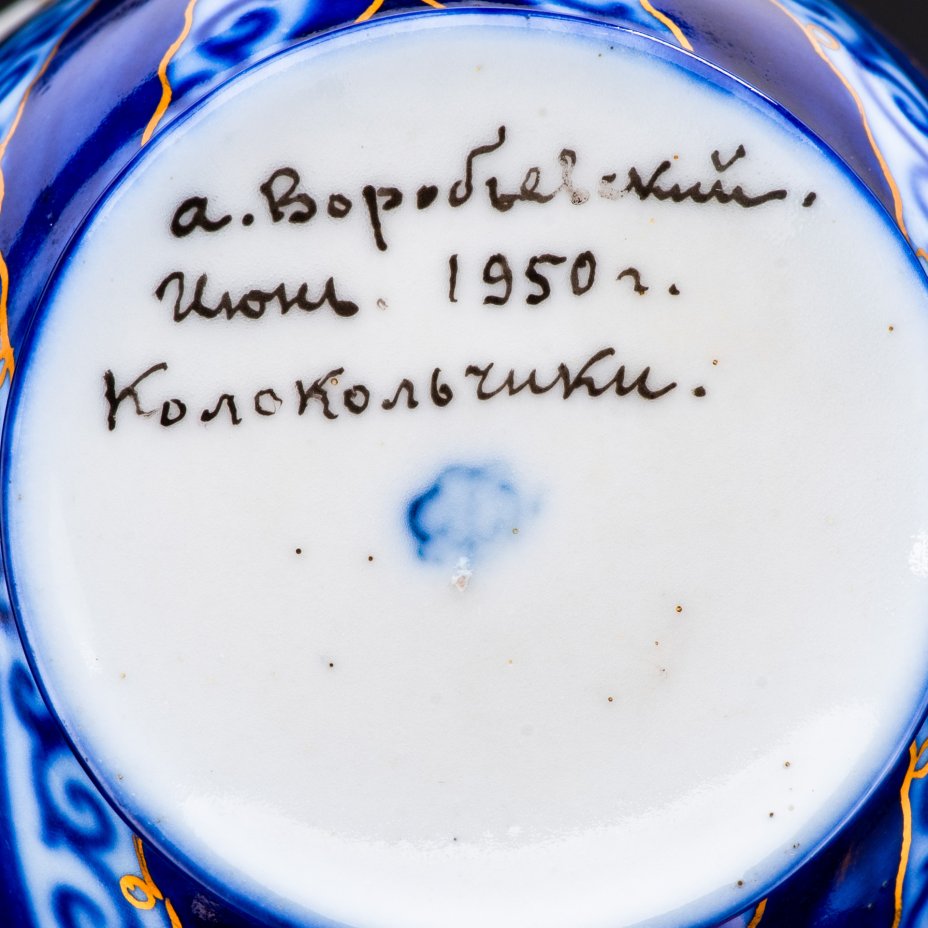 а. Воробьевский.
Июнь. 1950 г.
Колокольчики.